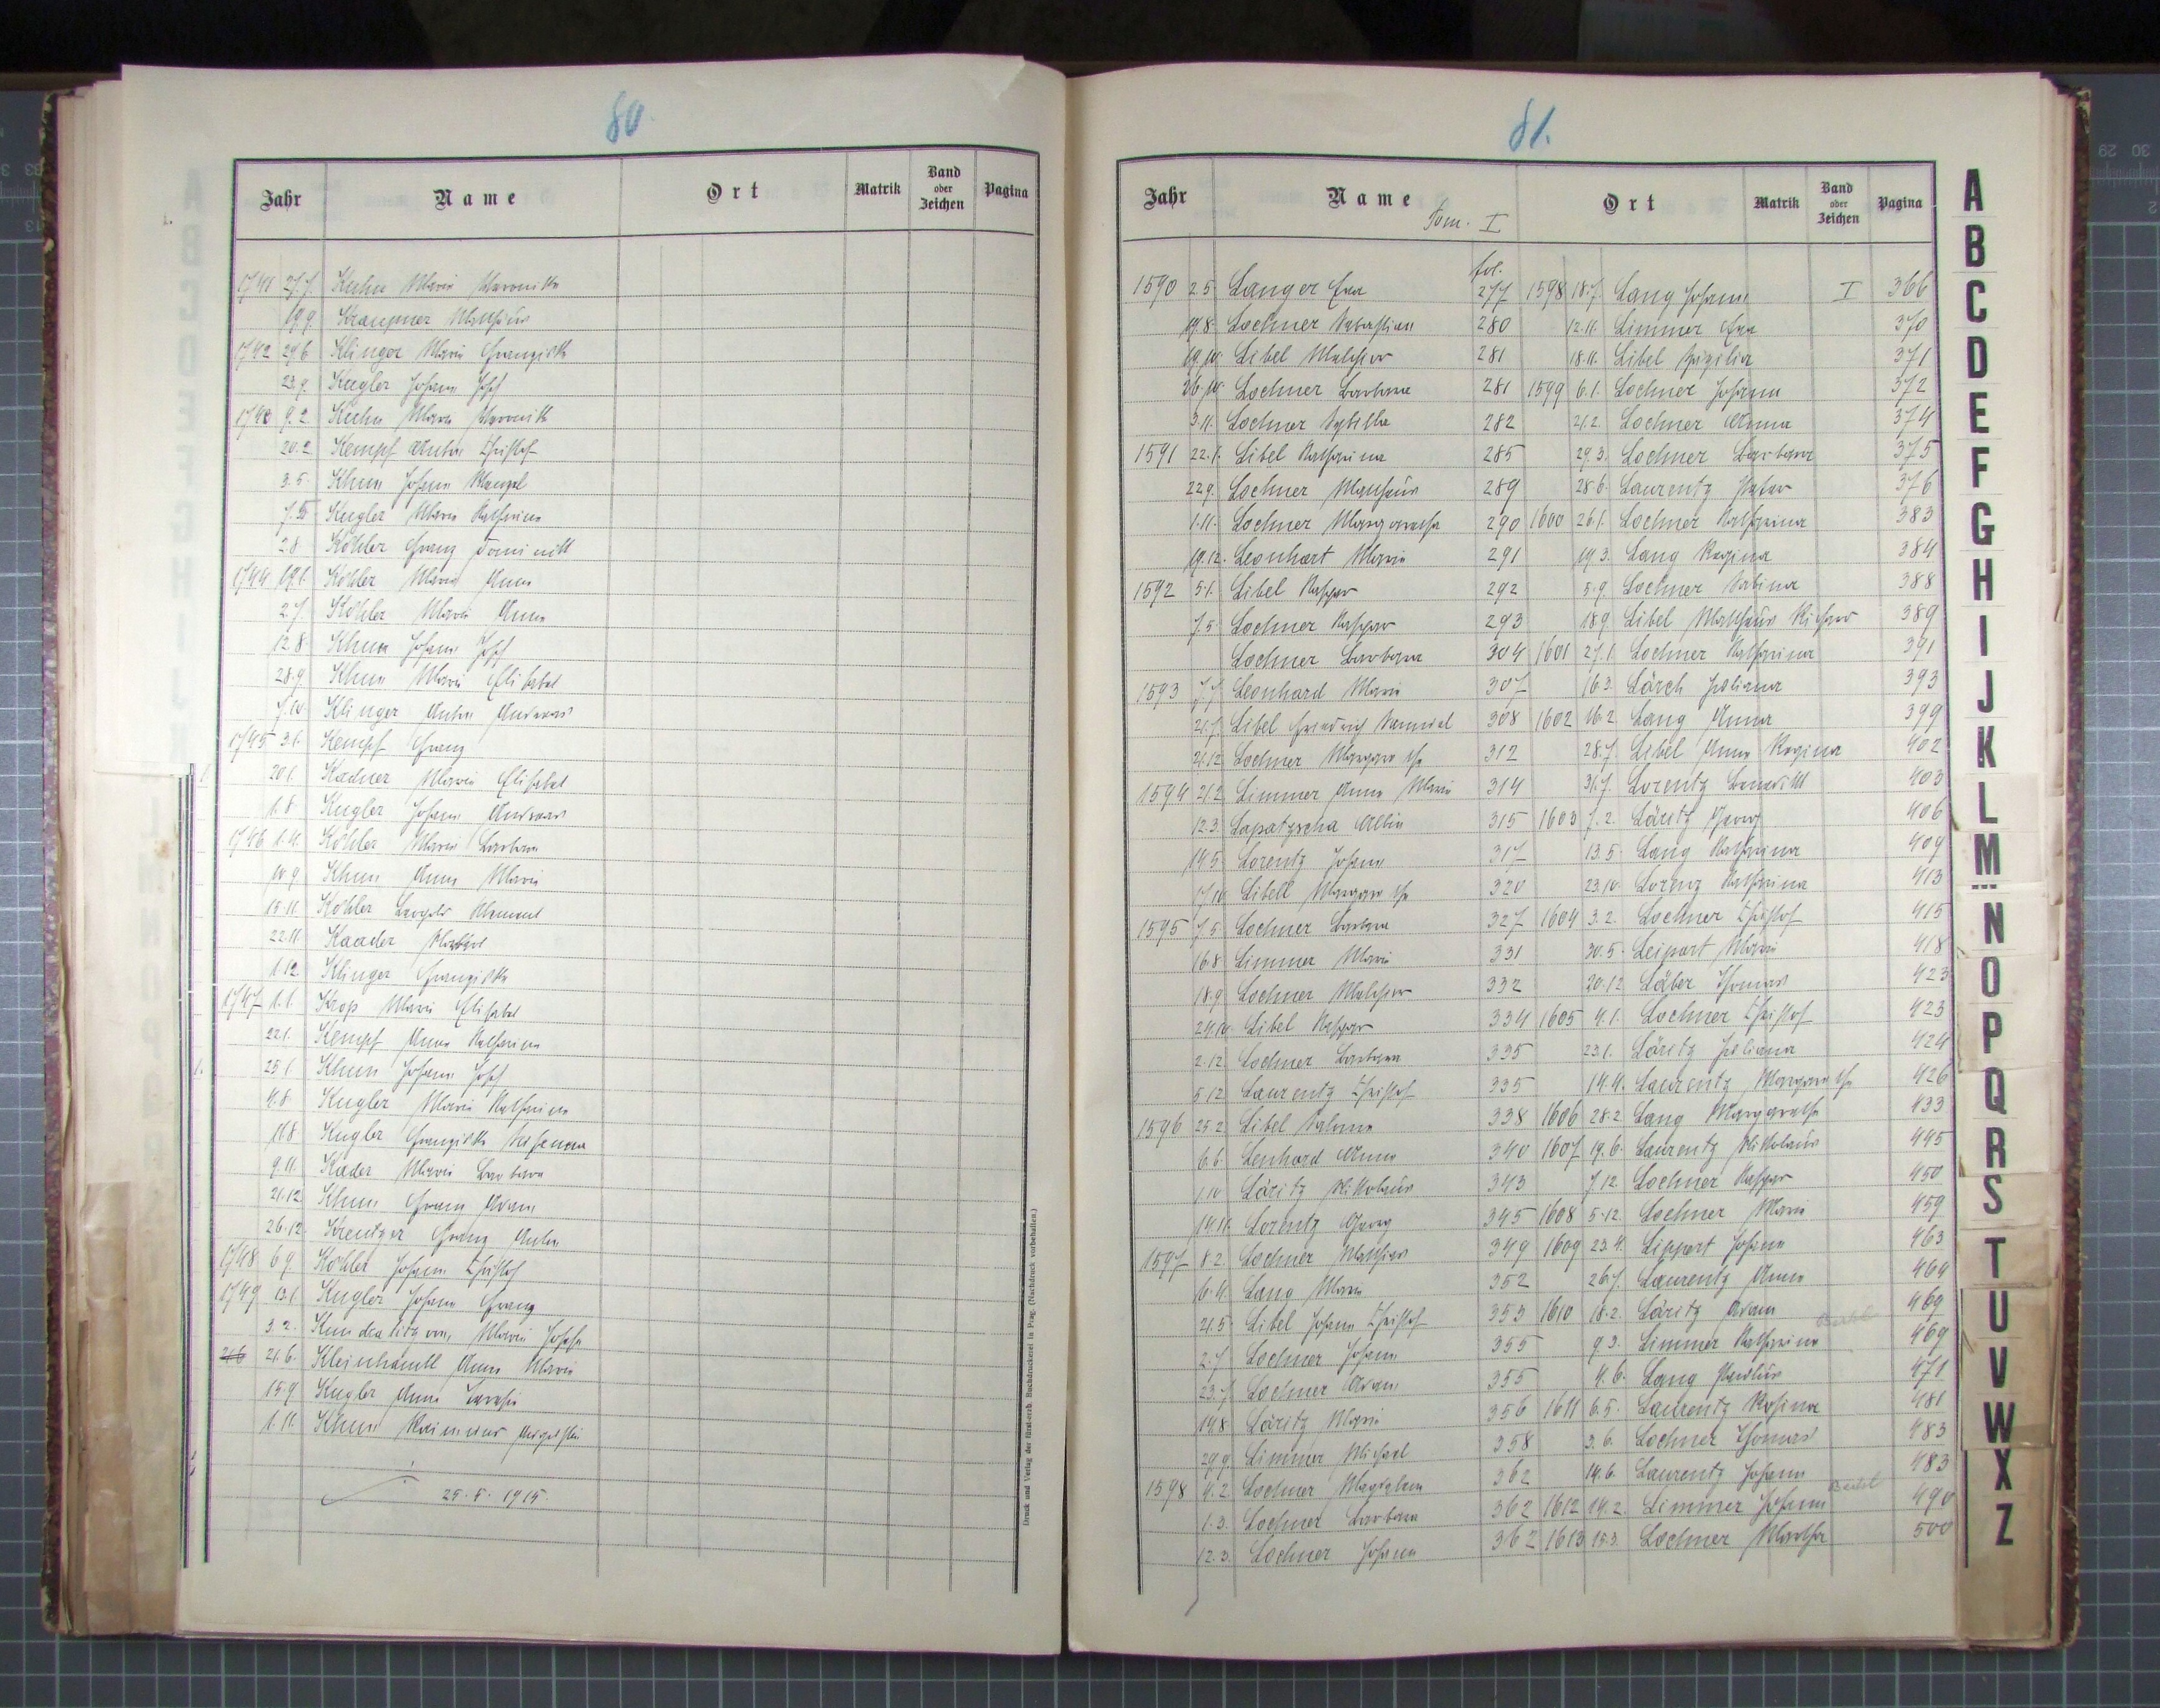 80
Jahr Name Ort Matrik Band oder Zeichen Pagina
1741 27.7. Kuhn Maria Veronika
19.9. Kraupner Mathäus
1742 24.6. Klinger Maria Franziska
23.9. Kugler Johann Josef
9.2. Kuhn Maria Veronika
20.2. Kempf Anton Christof
3.5. Khun Johann Wenzel
Kugler Maria Katharina
2.8. Köhler Franz Dominik
1744 19.1. Köhler Maria Anna
2.7. Köhler Maria Anna
12.8. Khun Johann Josef
28.9. Khun Maria Elisabet
7.10. Klinger Anton Andreas
1745 3.1. Kempf Franz
20.1. Kadner Maria Elisabet
1.8. Kugler Johann Andreas
1746 1.4. Köhler Maria Barbara
10.9. Khun Anna Maria
15.11. Köhler Leopold Klement
22.11. Kaader
1.12. Klinger Franziska
1747 1.1. Krop Maria Elisabet
22.1. Kempf Anna Katharina
25.1. Khun Johann Josef
4.8. Kugler Maria Katharina
11.8. Kugler Franziska Susanna
9.11. Kader Maria Barbara
21.12. Khun Franz Adam
26.12. Kreutzer Franz Anton
1748 6.9. Köhler Johann Christof
1749 13.1. Kugler Johann Franz
3.2. Maria Josefa
21.6. Kleinhampl Anna Maria
15.9. Kugler Anna Teresia
1.11. Khun
25.5.1915.
Druck und Verlag der fürst-erzb. Buchdruckerei in Prag. (Nachdruck vorbehalten.)
81.
Jahr Name Ort Matrik Band oder Zeichen Pagina
Tom. I
fol.
1590 2.5. Langer Eva 277 1598 18.7. Lang Johann I 366
19.8. Lochner Sebastian 280 12.11. Limmer Eva 370
19.10. Libel Melchior 281 18.11. Libel Cäzilia 371
26.10. Lochner Barbara 281 1599 6.1. Lochner Johann 372
3.11. Lochner Sybilla 282 21.2. Lochner Anna 374
1591 22.1. Libel Katharina 285 29.3. Lochner Barbara 375
22.9. Lochner Mathäus 289 28.6. Laurentz Peter 376
1.11. Lochner Margaretha 290 1600 26.1. Lochner Katharina 383
19.12. Leonhart Maria 291 19.3. Lang Regina 384
1592 5.1. Libel Kaspar 292 5.9. Lochner Sabina 388
7.5. Lochner Kaspar 293 18.9. Libel Mathäus Richard 389
Lochner Barbara 304 1601 27.1. Lochner Katharina 391
1593 7.7. Leonhard Maria 307 16.3. Lärch Juliana 393
21.7. Libel Friedrich Samuel 308 1602 16.2. Lang Anna 399
21.12. Lochner Margaretha 312 28.7. Libel Anna Regina 402
1594 21.2. Limmer Anna Maria 314 31.7. Lorentz Benedikt 403
12.3. Lapatzscha Albin 315 1603 7.2. Läritz Georg 406
14.5. Lorentz Johann 317 13.5. Lang Katharina 409
17.10. Libell Margaretha 320 23.10. Lorenz Katharina 413
1595 7.5. Lochner Barbara 327 1604 3.2. Lochner Christof 415
16.8. Limmer Maria 331 30.5. Leipart Maria 418
18.9. Lochner Melchior 332 20.12. Läber Thomas 423
24.10. Libel Kaspar 334 1605 4.1. Lochner Christof 423
2.12. Lochner Barbara 335 23.1. Läritz Juliana 424
5.12. Laurentz Christof 335 14.4. Laurentz Margaretha 426
1596 25.2. Libel Salome 338 1606 28.2. Lang Margaretha 433
6.6. Lenhard Anna 340 1607 19.6. Laurentz Nikolaus 445
1.10. Läritz Nikolaus 343 7.12. Lochner Kaspar 450
14.11. Lorentz Georg 345 1608 5.12. Lochner Maria 459
1597 8.2. Lochner Mathias 349 1609 23.4. Lippert Johann 463
6.4. Lang Maria 352 26.7. Laurentz Anna 464
21.5. Libel Johann Christof 353 1610 18.2. Läritz Adam 469
2.7. Lochner Johann 355 9.3. Limmer Katharina 469
23.7. Lochner Adam 355 4.6. Lang Paulus 471
19.8. Läritz Maria 356 1611 6.5. Laurentz Rosina 481
29.9. Limmer Michael 358 3.6. Lochner Thomas 483
1598 4.2. Lochner Magdalena 362 14.6. Laurentz Johann 483
1.3. Lochner Barbara 362 1612 14.2. Limmer Johann 490
12.3. Lochner Johann 362 1613 15.3. Lochner Martha 500
A
B
C
D
E
F
G
H
I
J
K
L
M
N
O
P
Q
R
S
T
U
V
W
X
Z